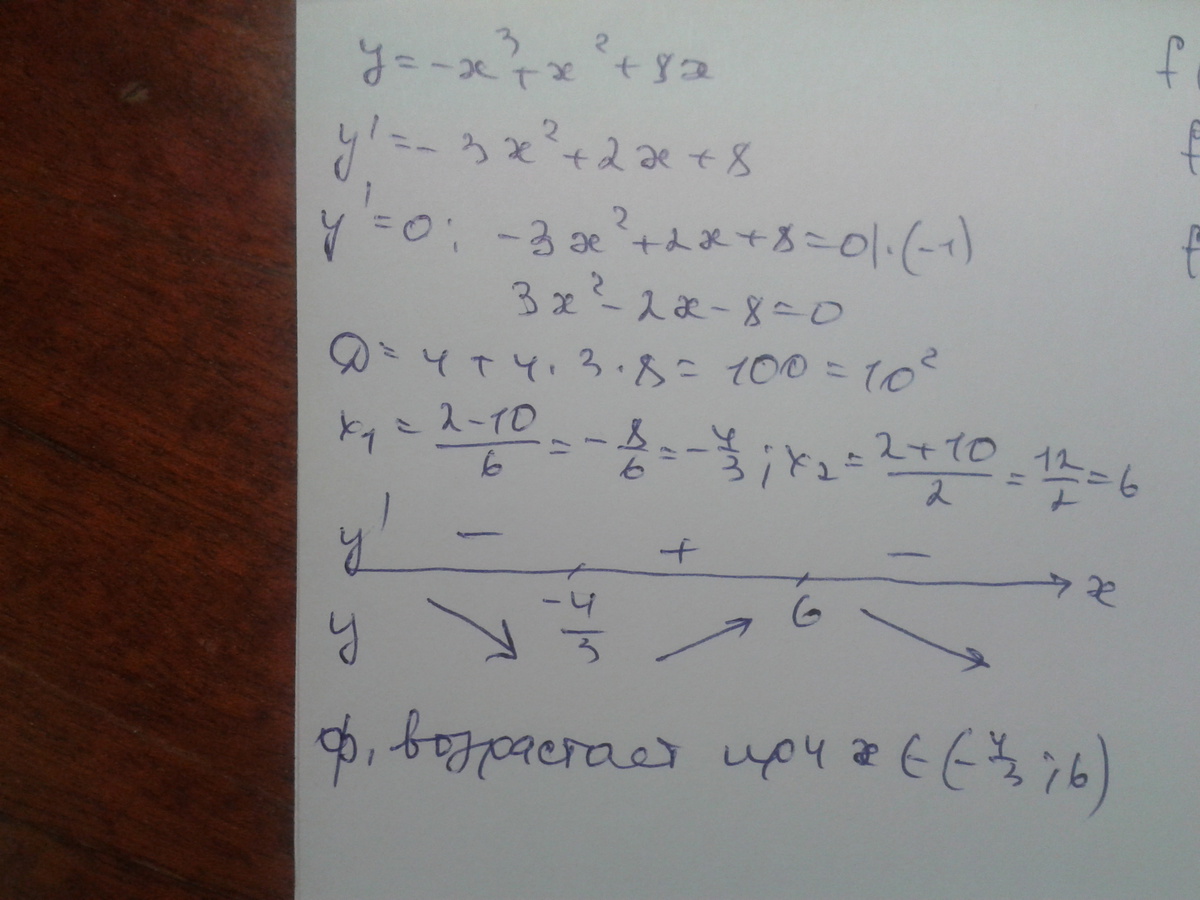 y = -x³ + x² + 8x
y' = -3x² + 2x + 8
y' = 0; -3x² + 2x + 8 = 0 |·(-1)
3x² - 2x - 8 = 0
D = 4 + 4·3·8 = 100 = 10²
x₁ = (2-10)/6 = -8/6 = -4/3; x₂ = (2+10)/2 = 12/2 = 6
y' - + -
-4/3 6 x
y
ф. возрастает при x ∈ (-4/3; 6)
f(
f
f